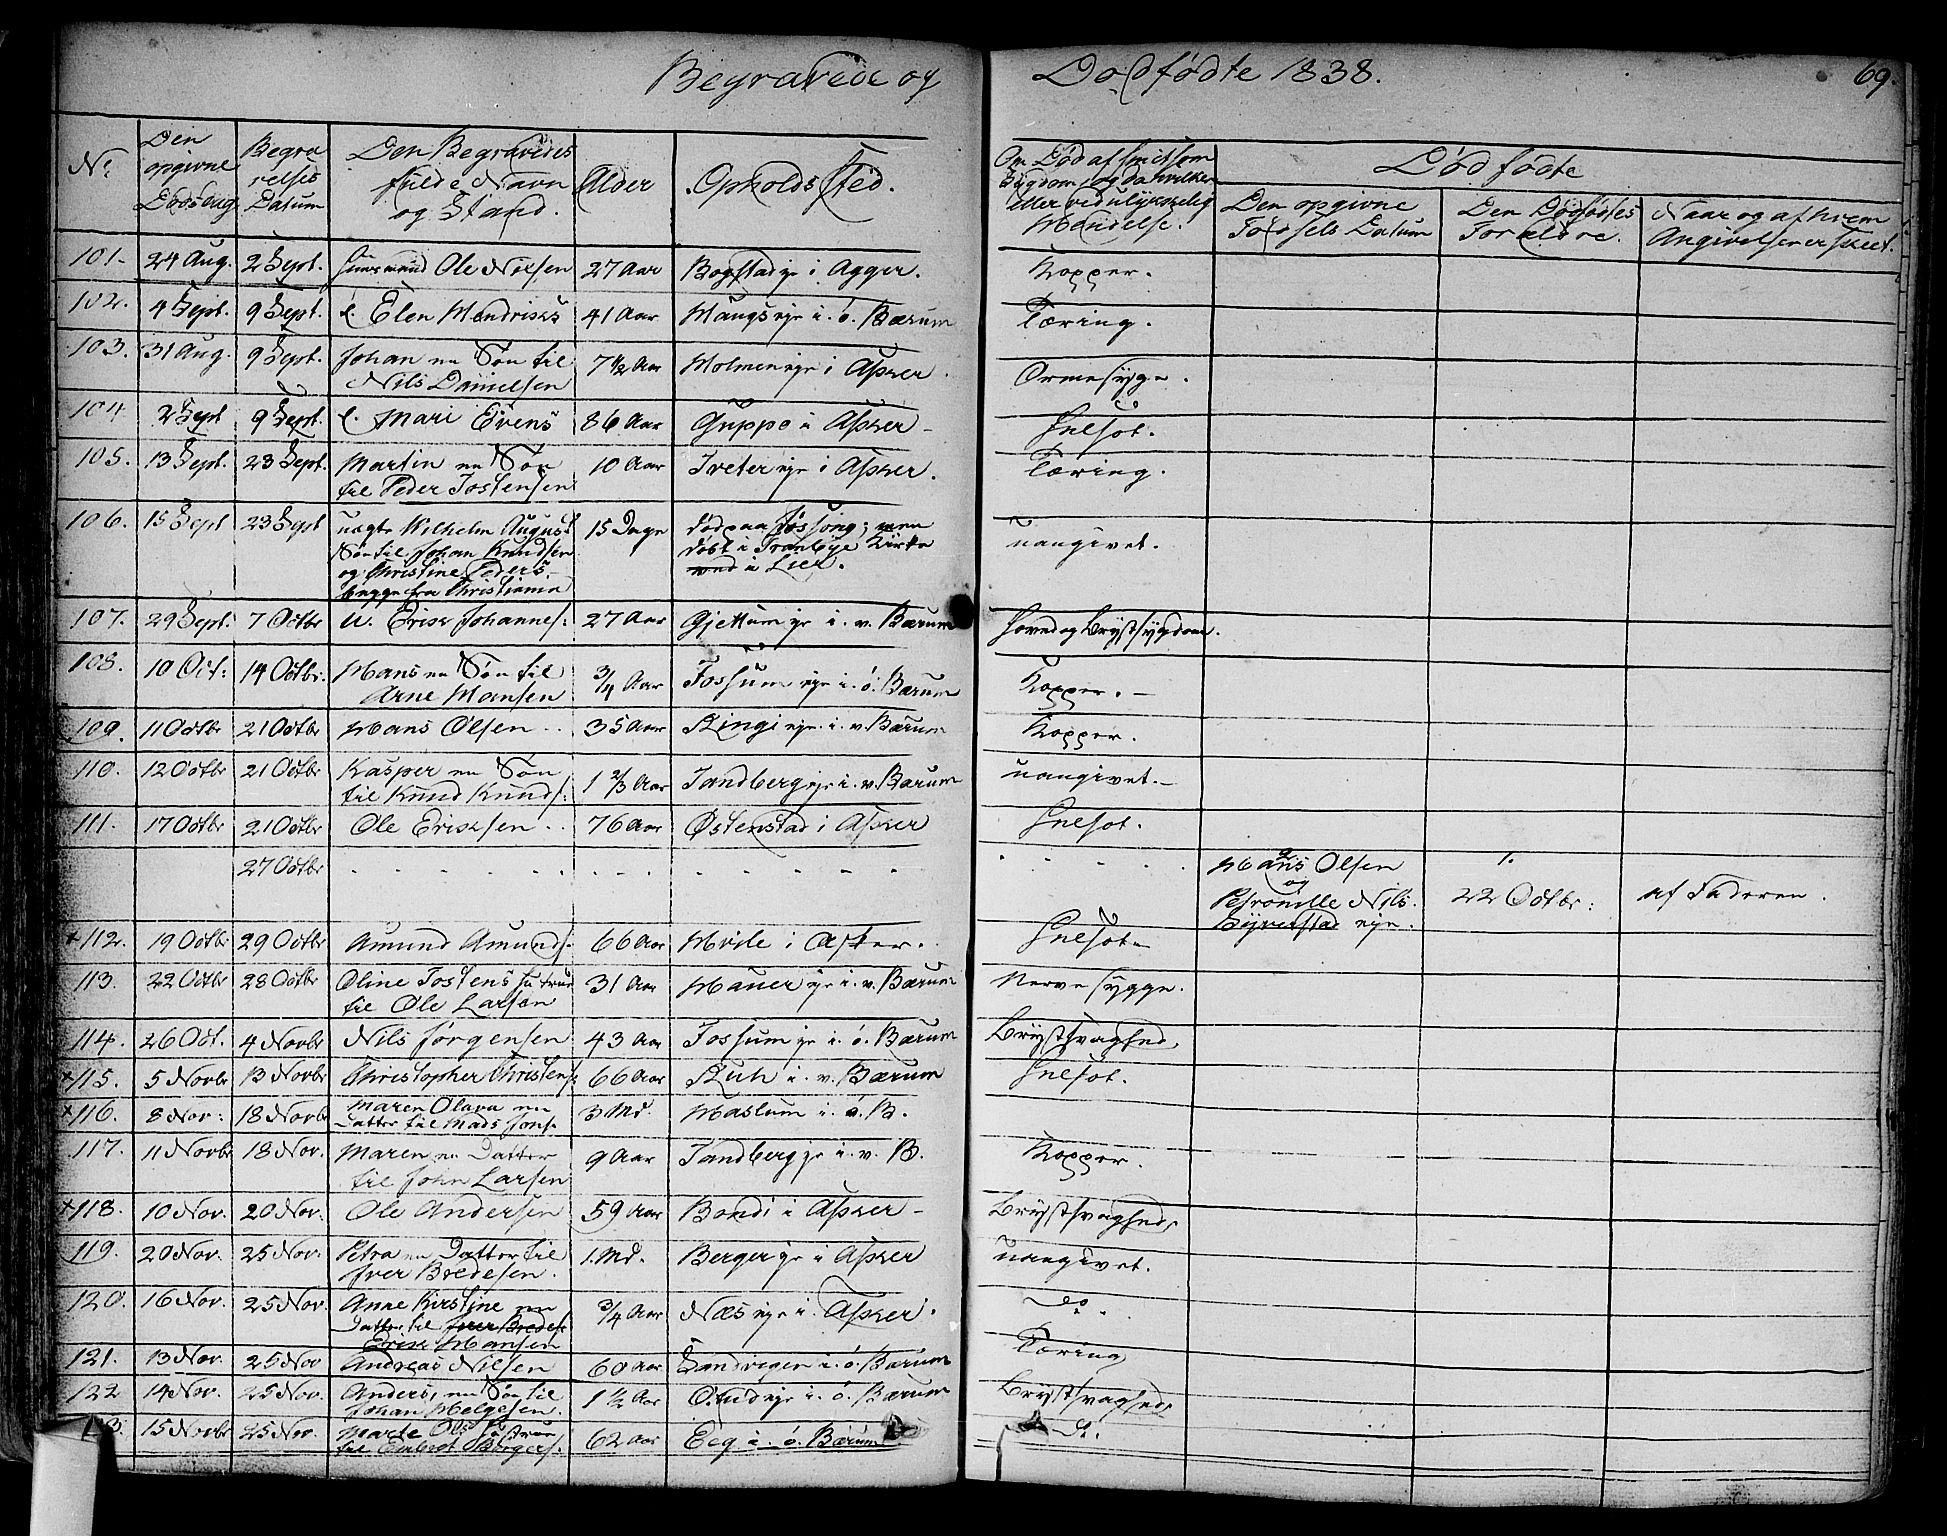 Begravede og Dødfødte 1838. 69.
No
Den opgivne Dødsdag
Begravelses Datum
Den Begravedes fulde Navn og Stand.
Alder
Opholds Sted.
Om Død af smitsom Sygdom, og da hvilken eller ved ulykkelig Hændelse.
Død fødte
Den opgivne Fødsels Datum
Den Dødfødtes Forældre.
Naar og af hvem Angivelsen er skeet.
101. 24 Aug. 2 Sept. Ole Nilsen 27 Aar Bogstad eje i Agger. Kopper.
102. 4 Sept. 9 Sept. E. Elen Hendriks 41 Aar Haugs eje i ö. Bærum Tæring.
103. 31 Aug. 9 Sept. Johan en Søn til
Nils Danielsen 7 1/2 Aar Holmen eje i Asker. Ormesyge.
104 2 Sept 9 Sept. E. Mari Evens 86 Aar Guppo i Asker - Inelsot.
105. 13 Sept. 23 Sept. Martin en Søn
til Peder Tostensen 10 Aar Tveter eje i Asker. Tæring.
106. 15 Sept 23 Sept uægte Wilhelm August
Søn til Johan Knudsen
og Christine Peders
begge fra Christiania 15 Dage
død paa Fossong; men
døbt i Tranbye Kirke
ved i Lier. uangivet.
107. 29 Sept: 7 Octbr U. Erik Johannes: 27 Aar Gjettum eje i. v. Bærum Hoved og Brystsygdom.
108. 10 Oct: 14 Octbr. Hans en Søn til
Arne Hansen 3/4 Aar Fossum eje i. ö. Bærum Kopper. -
109. 11 Octbr 21 Octbr Hans Olsen .. 35 Aar Ringi eje. i. v. Bærum Kopper.
110. 12 Octbr 21 Octbr Kasper en Søn
til Knud Knuds: 1 2/3 Aar Tandberg eje i. v. Bærum uangivet. -
111. 17 Octbr 21 Octbr Ole Eriksen .. 76 Aar Østenstad i Asker Inelsot.
27 Octbr
Hans Olsen
og
Petronille Nils.
Byverstad eje. 1.
22 Octbr: af Faderen.
+112. 19 Octbr 29 Octbr Amund Amunds. 66 Aar Hvile i Asker. Inelsot -
113. 22 Octbr 28 Octbr Oline Tostens Hustrue
til Ole Larsen 31 Aar Hauer eje i. v. Bærum Nerve sygge.
114. 26 Oct. 4 Novbr Nils Jørgensen 43 Aar Fossum eje i. ö. Bærum Brystsvaghed.
+115. 5 Novbr 13 Novbr Christopher Christens: 66 Aar Rud i. v. Bærum Inelsot.
+116. 8 Nov: 18 Novbr Maren Olava en
Datter til Mads Jons. 3 Md. Haslum i. ö. B.
117. 11 Novbr 18 Nov. Maren en Datter
til John Larsen 9 Aar Tandberg eje i. v. B. Kopper.
+118. 10 Nov. 20 Nov. Ole Andersen 59 Aar Bondi i Asker - Brystsvaghed.
119. 20 Nov. 25 Nov. Petra en Datter til
Iver Bredesen. 1. Md. Berger eje i Asker uangivet.
120. 16 Nov. 25 Nov. Anne Kirstine en
Datter til Iver Bredes
Erik Hansen 3/4 Aar Næs eje i. Asker. do.
121. 13 Nov. 25 Nov Andreas Nilsen 60 Aar Sandvigen i. ö. Bærum Tæring
122 14 Nov. 25 Nov. Anders, en Søn til
Johan Helgesen. 1 1/2 Aar Østud eje i. ö. Bærum Brystsvaghed.
15 Novbr 25 Nov. Marte Ols Hustrue
til Børgers. 62 Aar Eeg i. ö. Bærum do.